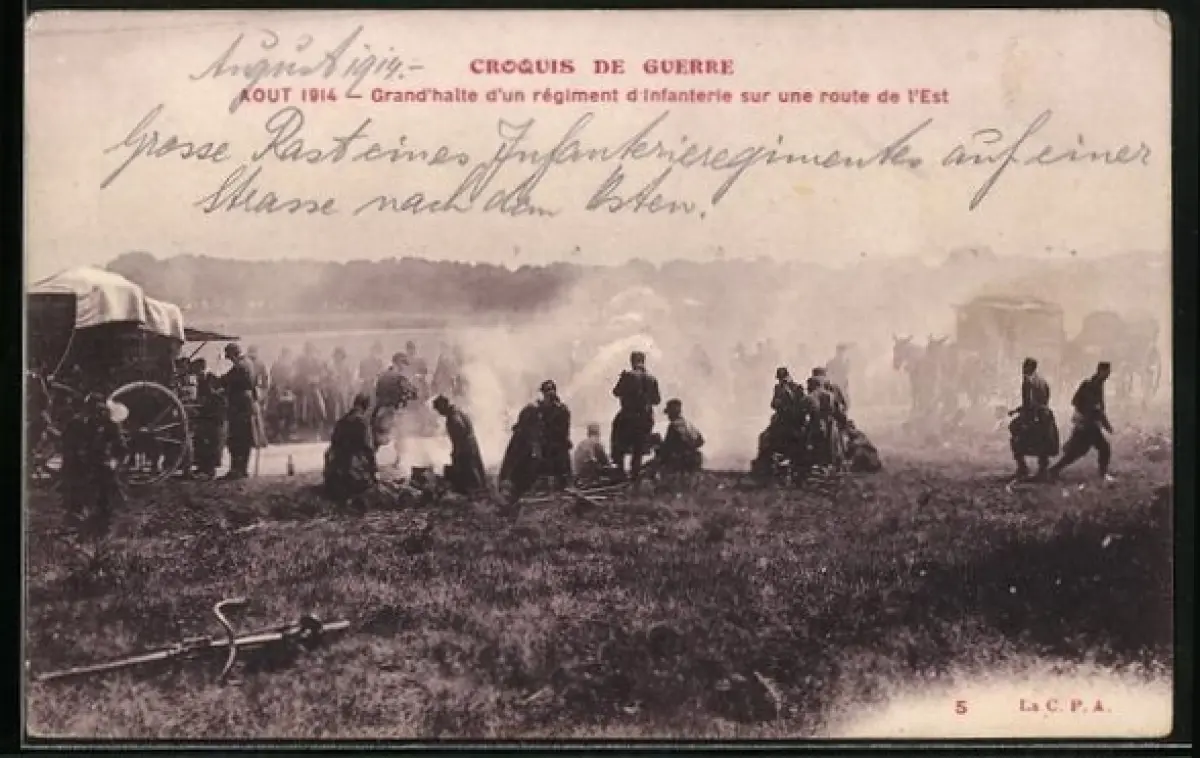 August 1914.-
CROQUIS DE GUERRE
AOUT 1914 — Grand'halte d'un régiment d'Infanterie sur une route de l'Est
Grosse Rast eines Infanterieregimentes auf einer
Strasse nach dem Osten.
5 La C. P. A.